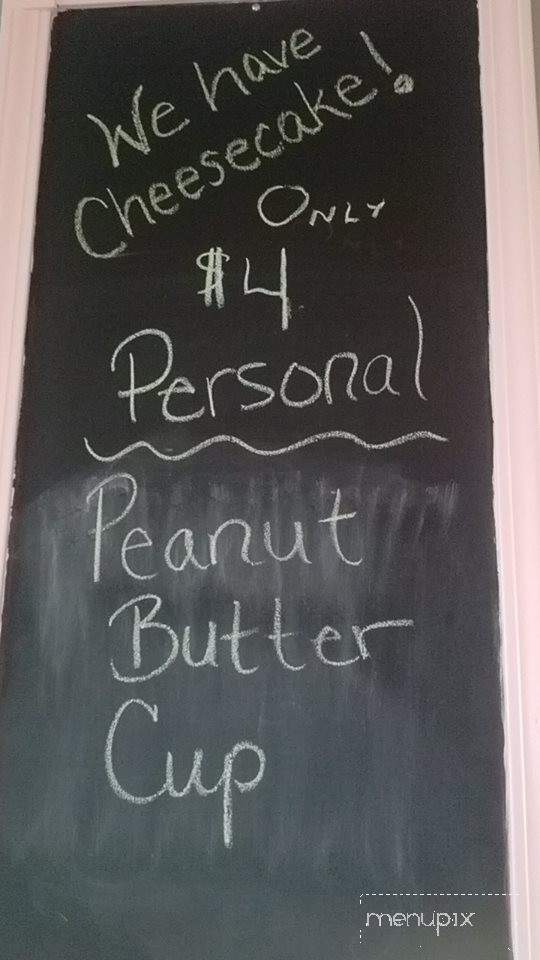 We have
Cheesecake!
ONLY
$4
Personal
Peanut
Butter
Cup
menupix